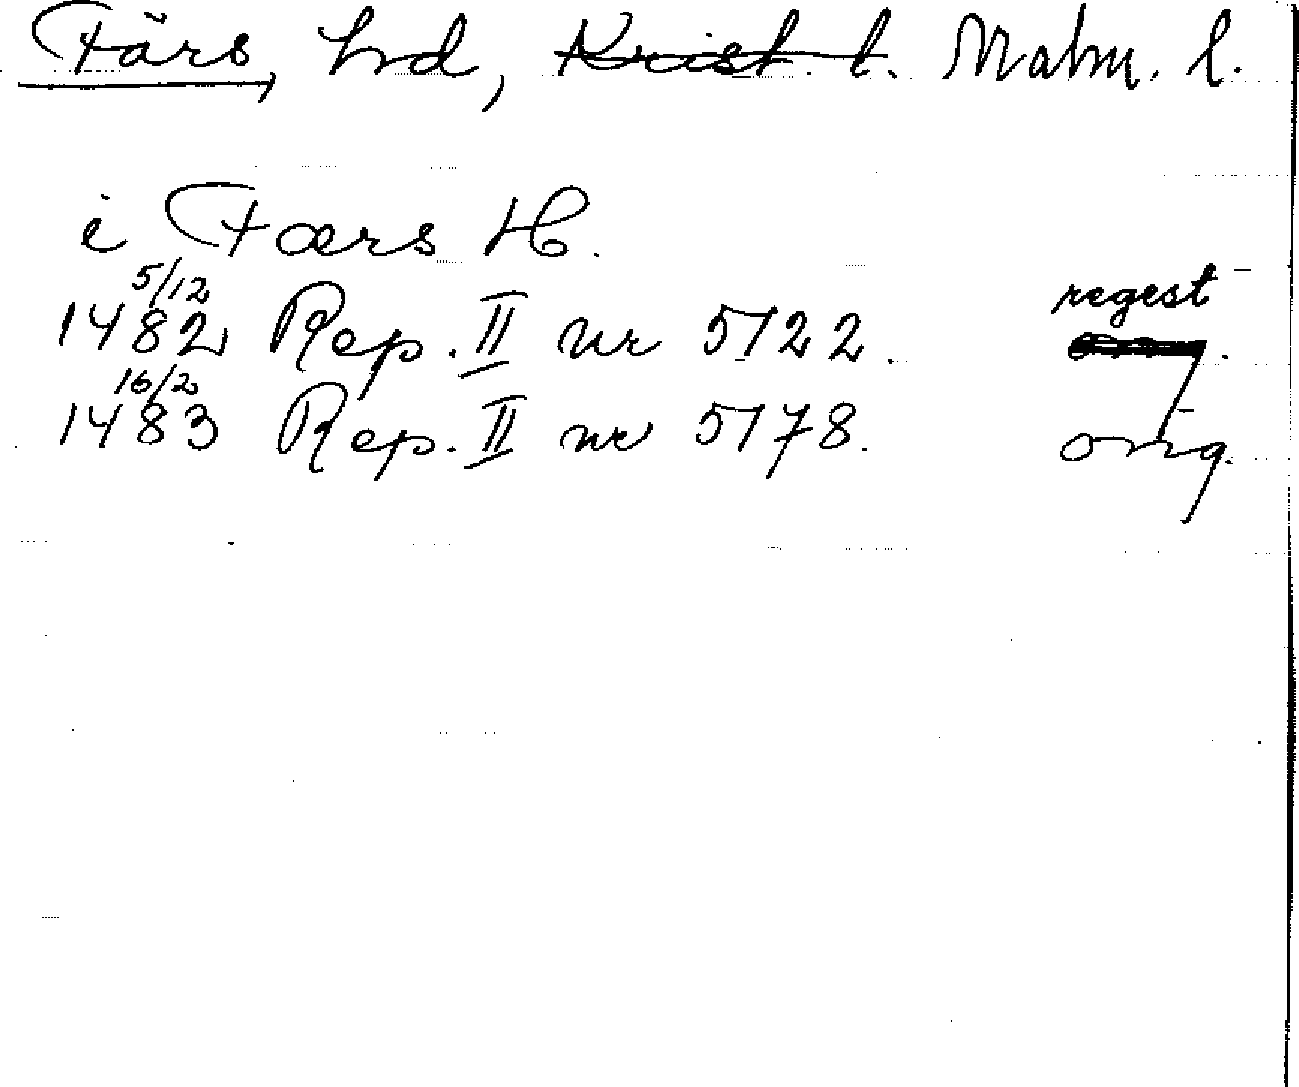 Färs, hd, Krist. l. Malm. l.
i Færs H.
5/12
1482 Rep. II nr 5122. regest
16/2
1483 Rep. II nr 5178. orig.